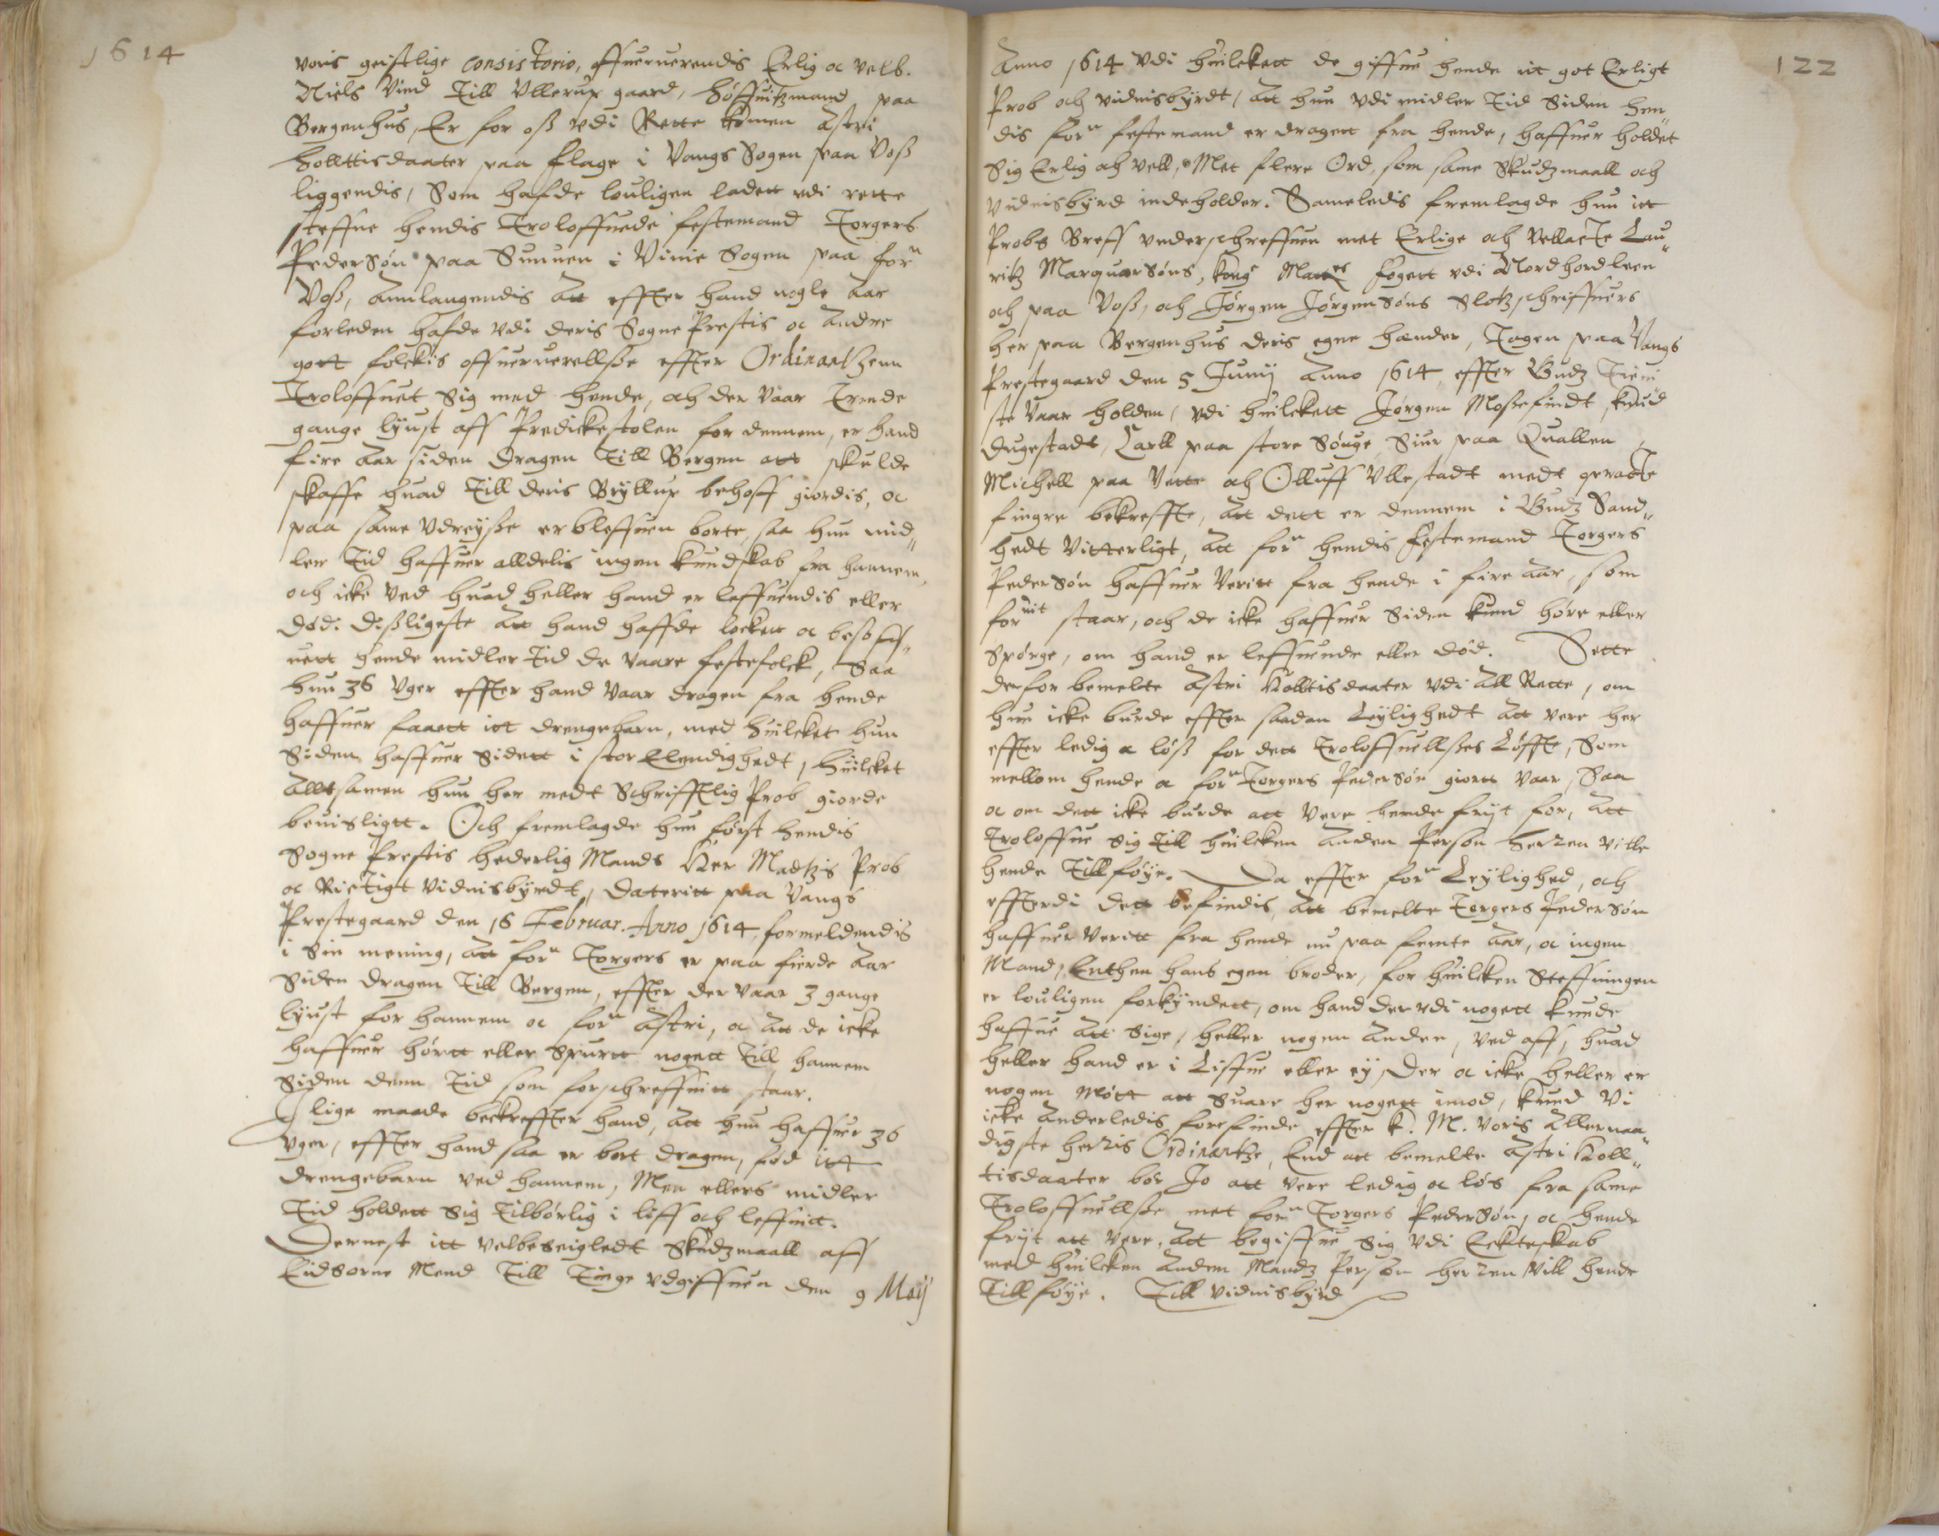 1614
voris geistlige Consistorio, offueruerendis Erlig oc velb.
Niels Vind Till Ullerup gaard, høffuitzmand paa
Bergenhus, Er for oß vdi Rette komen Astri
hollttisdaater paa flage i Vangs Sogen paa Voß
liggendis, Som hafde louligen ladett vdi rette
steffne hendis Troloffuede festemand Torgers
PederSøn paa Sunuen i Vinie Sogen paa forn
Voß, Annlangendis Att effter hand nogle Aar
forleden hafde vdi deris Sogne Prestis oc Andre
gott folckis offueruerellsße effter Ordinantzenn
Troloffuet Sig med hende, och der vaar Trende
gange lyust aff Predickestolen for dennem, er hand
fire Aar siden dragen Till Bergen att skulde
skaffe huad Till deris Bryllup behoff giordis, oc
paa same Vdreysße er bleffuen borte, saa hun mid„
ler Tid haffuer alldelis ingen kundskab fra hannem,
och icke ved huad heller hand er leffuendis eller
død. dißligeste Att hand haffde locket oc besoff„
uett hende midler Tid de vaare festefolck, Saa
hun 36 Vger effter hand vaar dragen fra hende
haffuer faaett itt drengebarn, med huilcket hun
Siden haffuer Sidett i stor Elendighedt, huilcket
Alltsamen hun her medt Schrifftlig Prob giorde
beuisligtt. Och fremlagde hun først hendis
Sogne Prestis hederlig Mands Her Madtzis Prob
oc Rictigt vidnisbyrdt, Dateritt paa Vangs
Prestegaard den 16 Februar. Anno 1614, formeldendis
i Sin mening, Att forn Torgers er paa fierde Aar
Siden dragen Till Bergen, effter der vaar 3 gange
lyust for hannem oc forn Astri, oc Att de icke
haffuer hørtt eller Spurtt nogett Till hannem
Siden denn Tid som forschreffuitt staar.
I lige maade beckreffter hand, Att hun haffuer 36
Vger, effter hand saa er bort dragen, fød itt
drengebarn ved hannem, Men ellers midler
Tid holdett Sig Tilbørlig i liff och leffnitt.
Dernest itt velbeseigledt Skudzmaall aff
Eidsorne Mend Till Tinge vdgiffuen den 9 Maij
122
Anno 1614 vdi huilckett de giffue hende itt got Erligt
Prob och vidnisbyrdt, Att hun vdi midler Tid Siden hen„
dis forn festemand er dragett fra hende, haffuer holdet
Sig Erlig och vell, Met flere Ord, som same Skudzmaall och
vidnisbyrd indeholder. Sameledis fremlagde hun itt
Probs Breff vnderschreffuen met Erlige och Vellacte Lau„
ritz MarquorSøns, kong Matts fogett vdi Nordhordleen
och paa Voß, och Jørgen JørgenSøns Slotzschriffuers
her paa Bergenhus deris egne hænder, Tagen paa Vangs
Prestegaard den 5 Junij Anno 1614, effter Gudz Tieni
ste Vaar holden, vdi huilckett Jørgen Mosßefindt, knud
dugestadt, Carll paa store Søuge, Siur paa Quallen,
Michell paa Vette och Olluff Vllestadt medt opracte
fingre bekreffte, Att dett er dennem i Gudz Sand„
hedt vitterligt, Att forn hendis festemand Torgers
PederSøn haffuer Veritt fra hende i fire Aar, som
fornit staar, och de icke haffuer Siden kund høre eller
Spørge, om hand er leffuende eller død. Sette
derfor bemelte Astri Holltisdaater vdi All Rette, om
hun icke burde effter saadan Leylighedt Att vere her
effter ledig oc løß for dett Troloffuellsßes Løffte, Som
mellom hende oc forn Torgers PederSøn giortt vaar, Saa
oc om dett icke burde att vere hende fryt for, Att
Troloffue Sig till huilcken Anden Person Herren ville
hende Tillføye. Da effter forn Leylighed, och
effterdi dett befindis, Att bemelte Torgers PederSøn
haffuer Veritt fra hende nu paa femte Aar, oc ingen
Mand, Enthen hans egen broder, for huilcken Steffningen
er louligen forkyndett, om hand der vdi nogett kunde
haffue Att Sige, heller nogen Anden, ved aff, huad
heller hand er i Liffue eller ey, Der oc icke heller er
nogen Mött att Suare her nogett imod, kund Vi
icke Anderledis forefinde effter k. M. voris Allernaa„
digste herris Ordinantze, End att bemelte Astri Holl„
tisdaater bør Jo att vere ledig oc løs fra same
Troloffuellsße met forn Torgers PederSøn, oc hende
fryt att vere, Att begiffue Sig vdi Ecteskab
med huilcken Anden Mandz Person Herren Vill hende
Tillføye. Till vidnisbyrd